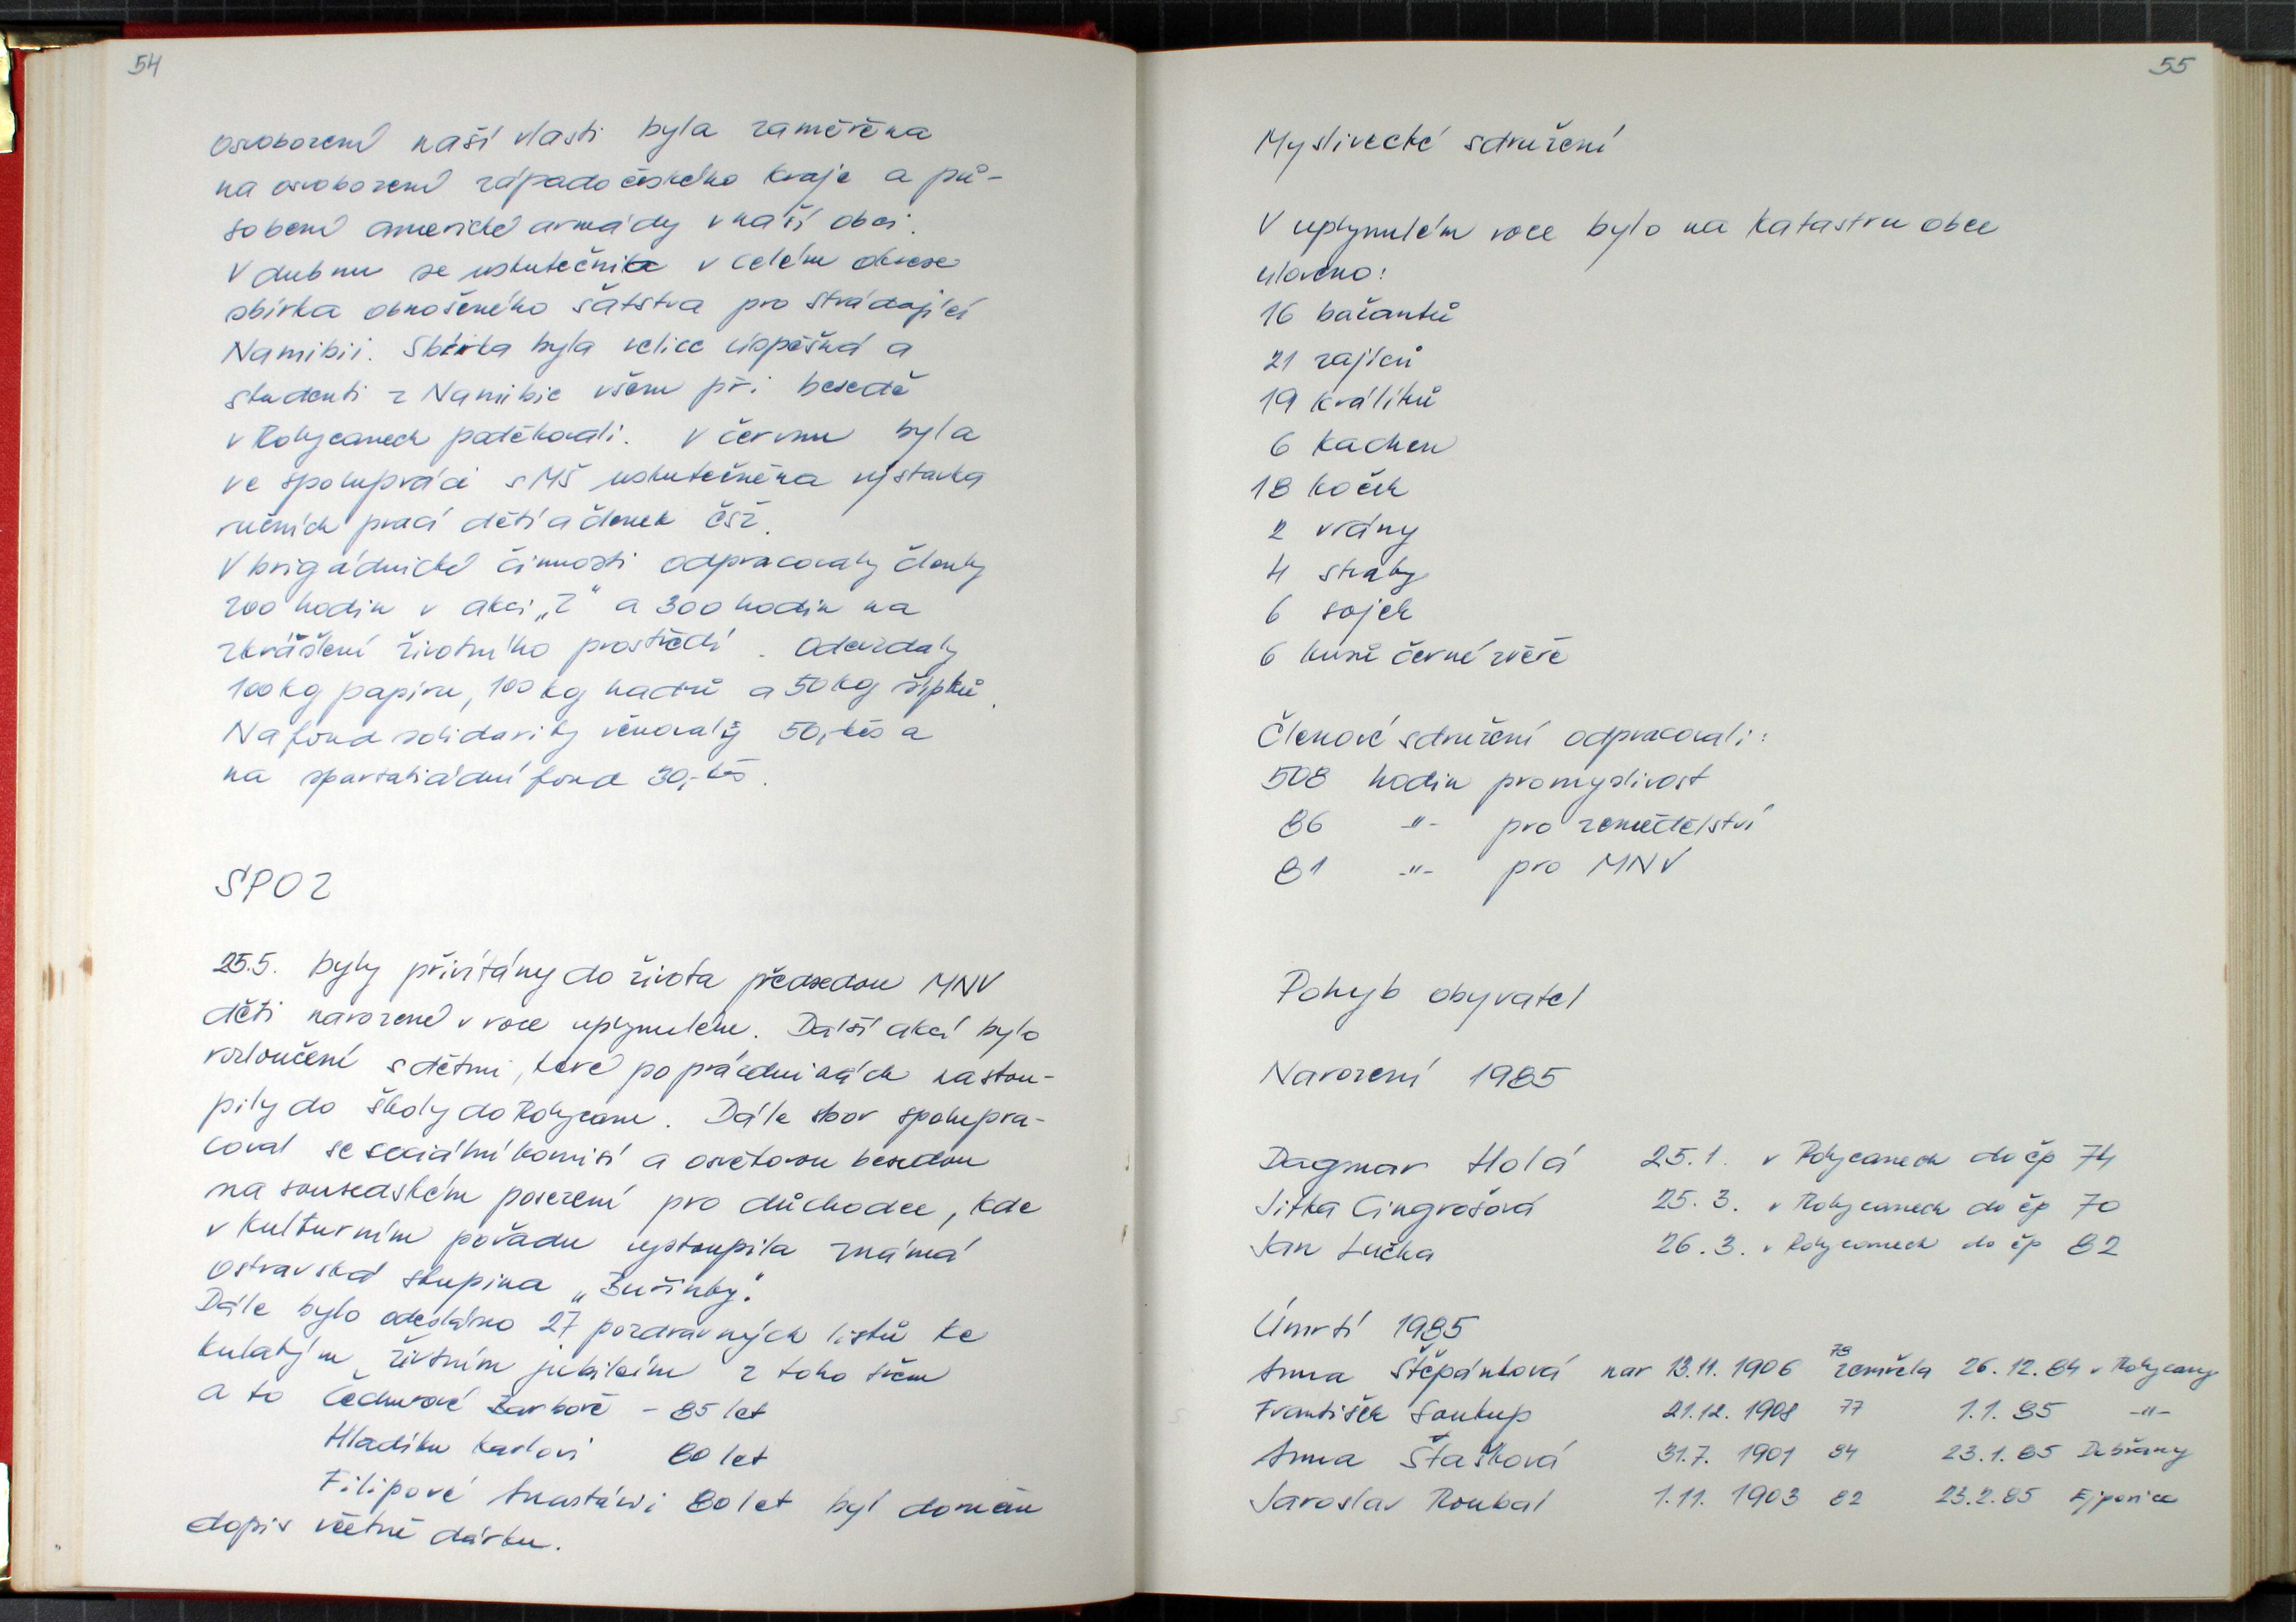 54
osvobození naší vlasti byla zaměřěna
na osvobození západočeského kraje a pů-
sobení americké armády v naší obci.
V dubnu se uskutečnila v celém okrese
sbírka obnošeného šatstva pro strádající
Namibii. Sbírka byla velice úspěšná a
studenti z Namibie všem při besedě
v Rokycanech poděkovali. V červnu byla
ve spolupráci s MŠ uskutečněna výstavka
ručních prací dětí a členek ČSŽ.
V brigádnické činnosti odpracovaly členky
200 hodin v akci „Z" a 300 hodin na
zkrášlení životního prostředí. Odevzdaly
100 kg papíru, 100 kg hadrů a 50 kg šípků.
Na fond solidarity věnovaly 50,- Kčs a
na spartakiádní fond 30,- Kčs.
SPOZ
25.5. byly přivítány do života předsedou MNV
děti narozené v roce uplynulém. Další akcí bylo
rozloučení s dětmi, které po prázdninách nastou-
pily do školy do Rokycan. Dále sbor spolupra-
coval se sociální komisí a osvětovou besedou
na sousedském posezení pro důchodce, kde
v kulturním pořadu vystoupila známá
Ostravská skupina „Buřinky".
Dále bylo odesláno 27 pozdravných listů ke
kulatým živtním jubileím z toho třem
a to Čechurové Barboře - 85 let
Hladíku Karlovi 80 let
Filipové Anastázii 80 let byl doručen
dopis včetně dárku.
55
Myslivecké sdružení
V uplynulém roce bylo na katastru obce
uloveno:
16 bažantů
21 zajíců
19 králíků
6 kachen
18 koček
2 vrány
4 straky
6 sojek
6 kusů černé zvěře
Členové sdružení odpracovali:
508 hodin pro myslivost
86 -"- pro zemědělství
81 -"- pro MNV
Pohyb obyvatel
Narození 1985
Dagmar Holá 25.1. v Rokycanech do čp 74
Jitka Cingrošová 25.3. v Rokycanech do čp 70
Jan Lučka 26.3. v Rokycanech do čp 82
Úmrtí 1985
Anna Štěpánková nar 13.11.1906 78 zemřela 26.12.84 v Rokycany
František Soukup 21.12.1908 77 1.1.85 -"-
Anna Štašková 31.7.1901 84 23.1.85 Dobřany
Jaroslav Roubal 1.11.1903 82 23.2.85 Ejpovice